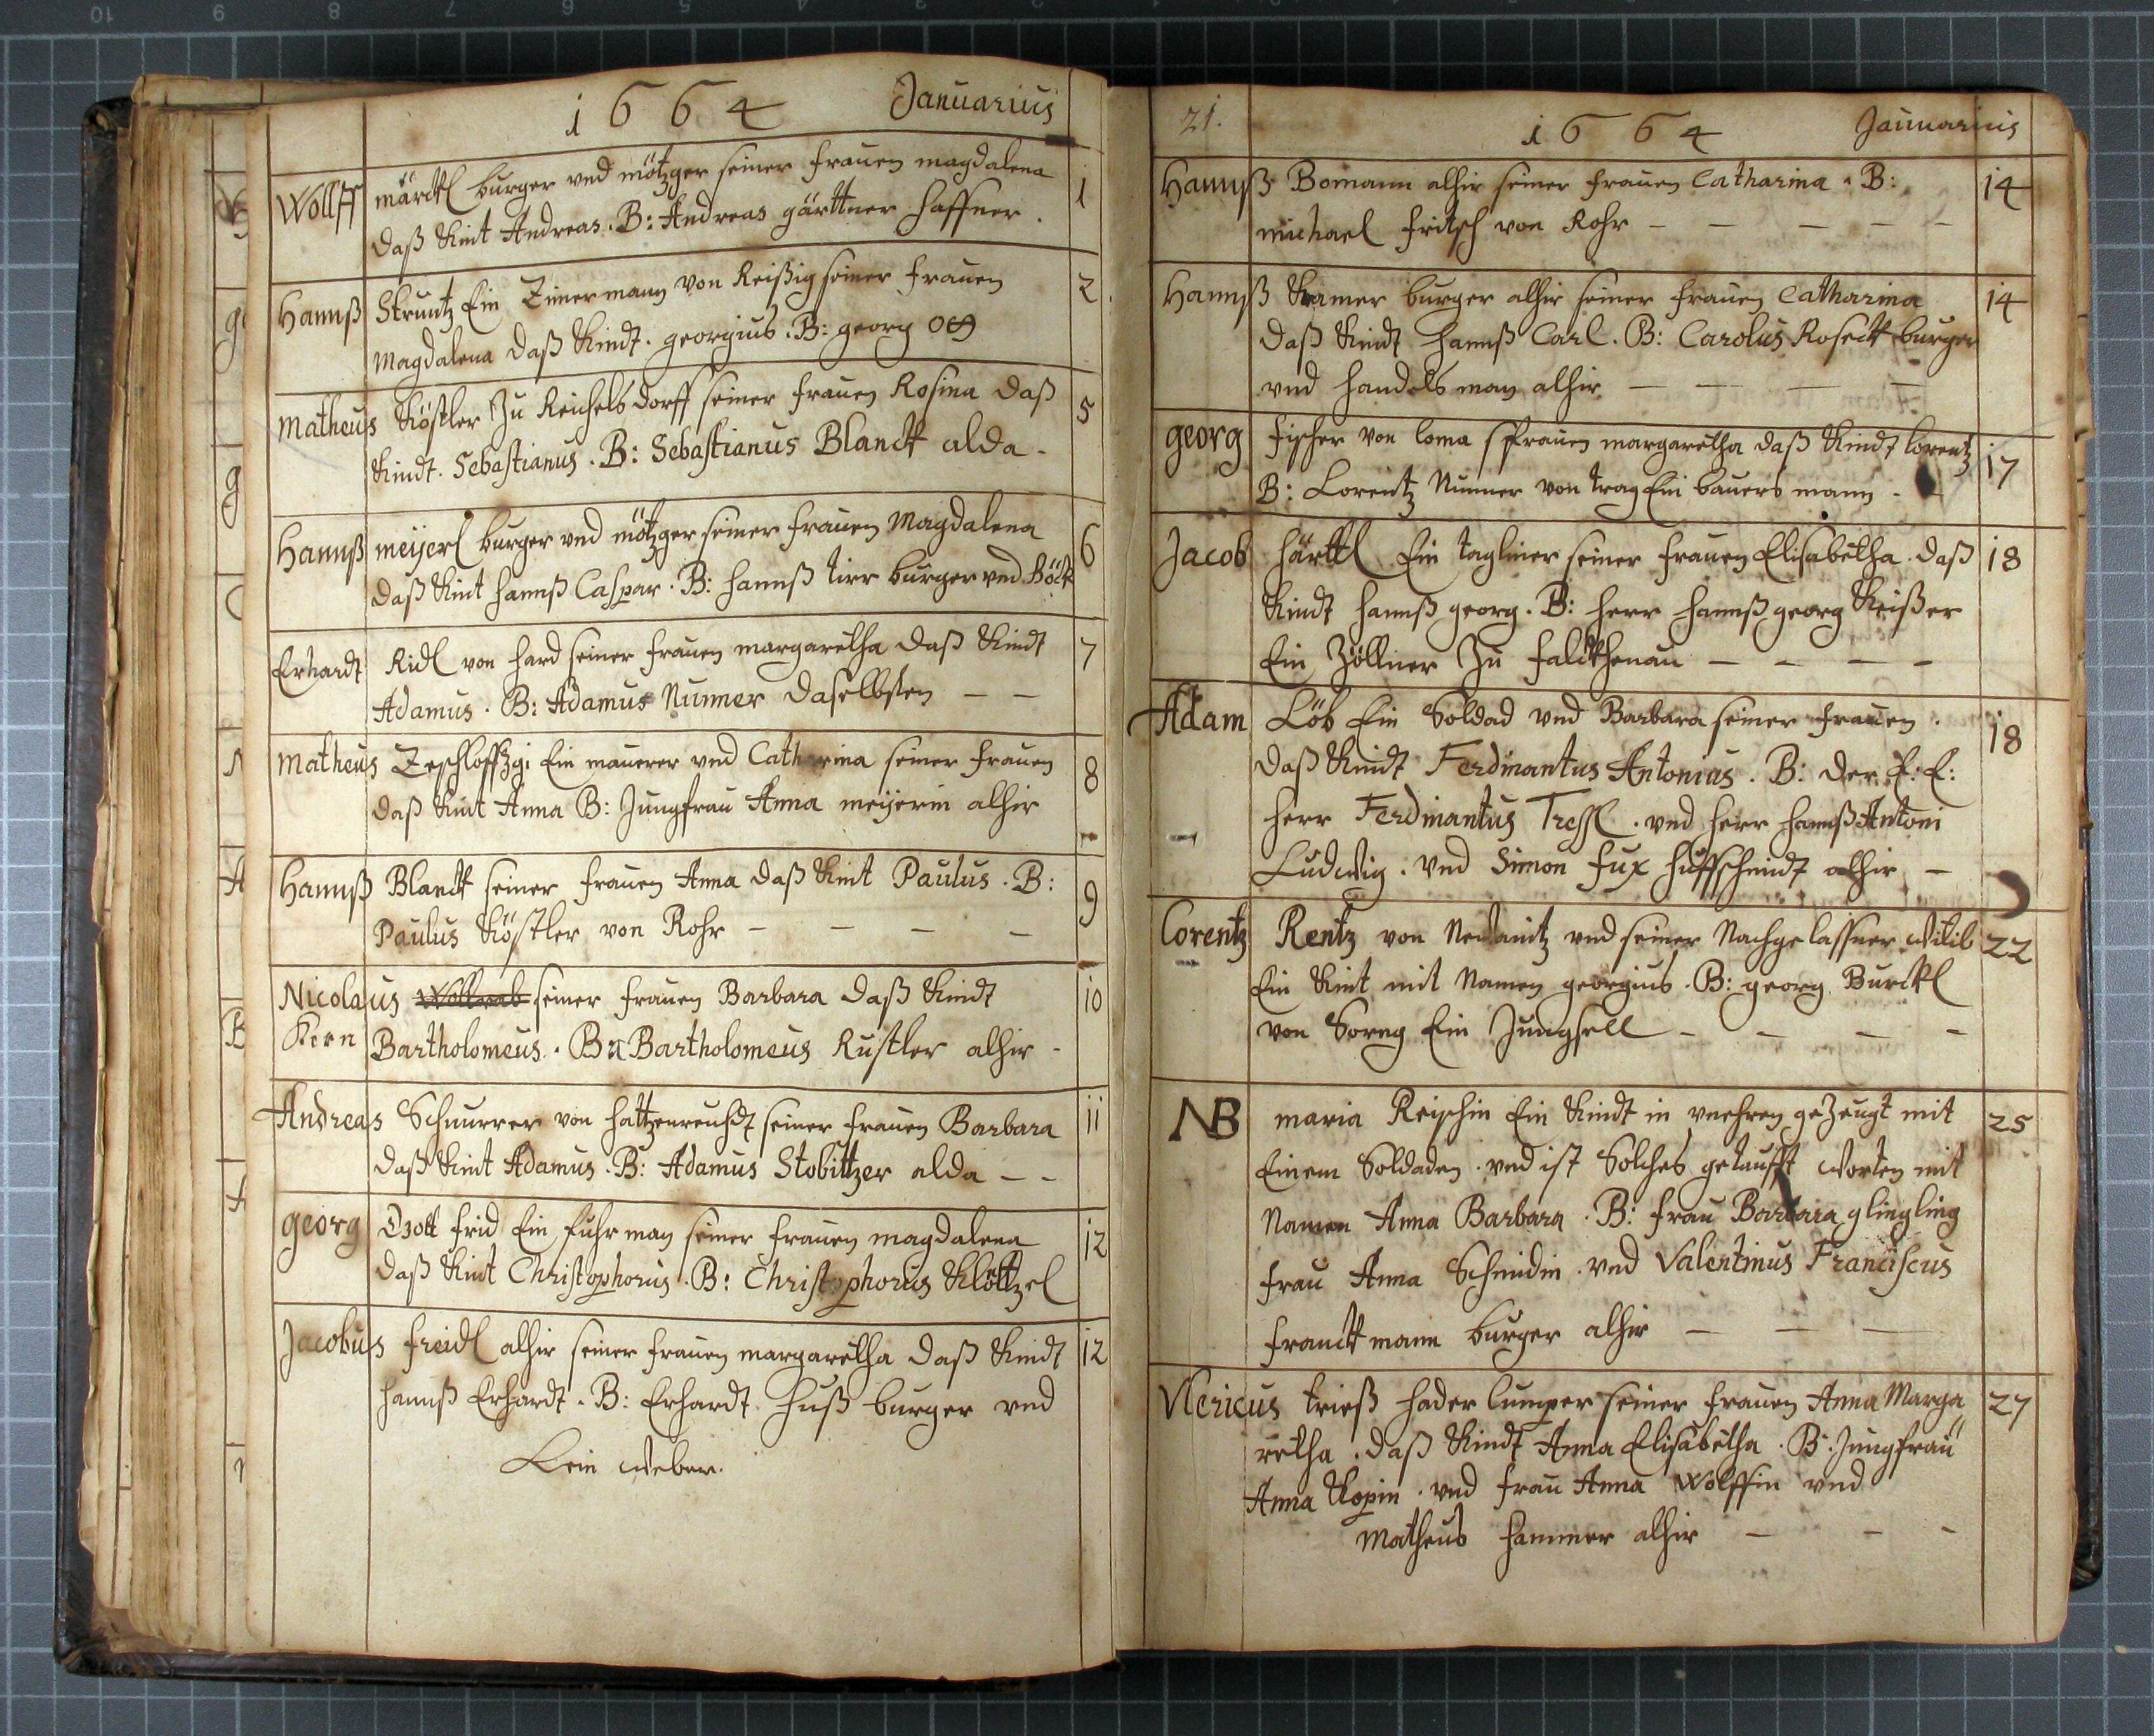 1664 Januarius
Wolff märckl burger vnd mötzger seiner frauen magdalena 1
daß Kint Andreas. B: Andreas gärttner haffner.
Hannß Struntz Ein Zimermann von Reißig seiner frauen 2
Magdalena daß Kindt. georgius. B: georg
Matheus Köstler Zu Reichelsdorff seiner frauen Rosina daß 5
Kindt. Sebastianus. B: Sebastianus Blanck alda.
Hannß meijerl burger vnd mötzger seiner frauen Magdalena 6
daß Kint hannß Caspar. B: hannß tirr burger vnd Böck
Erhardt Ridl von hard seiner frauen margaretha daß Kindt 7
Adamus. B: Adamus Nunner daselbsten – –
Matheus Ein maurer vnd Catharina seiner frauen 8
daß Kint Anna B: Jungfrau Anna meijerin alhir
Hannß Blanck seiner frauen Anna daß Kint Paulus. B: 9
Paulus Köstler von Rohr – – – –
Nicolaus Wollrab seiner frauen Barbara daß Kindt 10
Kern Bartholomeus. B: Bartholomeus Rustler alhir -
Andreas Schnurrer von hattzenreuhdt seiner frauen Barbara 11
daß Kint Adamus. B: Adamus Stobittzer alda – -
georg frid Ein fuhrman seiner frauen magdalena 12
daß Kint Christophorus. B: Christophorus Klöttzel
Jacobus freidl alhir seiner frauen margaretha daß Kindt 12
hannß Erhardt. B: Erhardt huß burger vnd
Lein weber.
21. 1664 Januarius
Hannß Bomann alhir seiner frauen Catharina. B: 14
michael fritsch von Rohr – – – – –
Hannß Kramer burger alhir seiner frauen Catharina 14
daß Kindt hannß Carl. B: Carolus Roseck burger
vnd handelsman alhir – – – –
georg fischer von loma frauen margaretha daß Kindt lorentz 17
B: Lorentz Nunner von trag Ein bauers mann -
Jacob härttl Ein taglöner seiner frauen Elisabetha. daß 18
Kindt hannß georg. B: herr hannß georg Keißer
Ein Zöllner Zu falckhenau – – – –
Adam Löb Ein Soldad vnd Barbara seiner frauen. 18
daß Kindt Ferdinantus Antonius. B: der E: E:
herr Ferdinantus Tressl. vnd herr hannß Antoni
Ludwig. vnd Simon fux huffschmidt alhir –
Lorentz Rentz von Nedanitz vnd seiner Nachgelassner witib 22
Ein Kint mit Namen georgius. B: georg Burckl
von Sorng Ein Jungsell – – – –
NB maria Reischin Ein Kindt in vnehren geZeugt mit 25
Einem Soldaden. vnd ist Solches getaufft worten mit
Namen Anna Barbara. B: frau Barbara glingling
frau Anna Schmidin. vnd Valentinus Franciscus
franckmann burger alhir – – –
Vlericus trieß hader lumper seiner frauen Anna Marga 27
retha. daß Kindt Anna Elisabetha. B: Jungfrau
Anna Kopin. vnd frau Anna Wolffin vnd
Matheus hammer alhir – – -